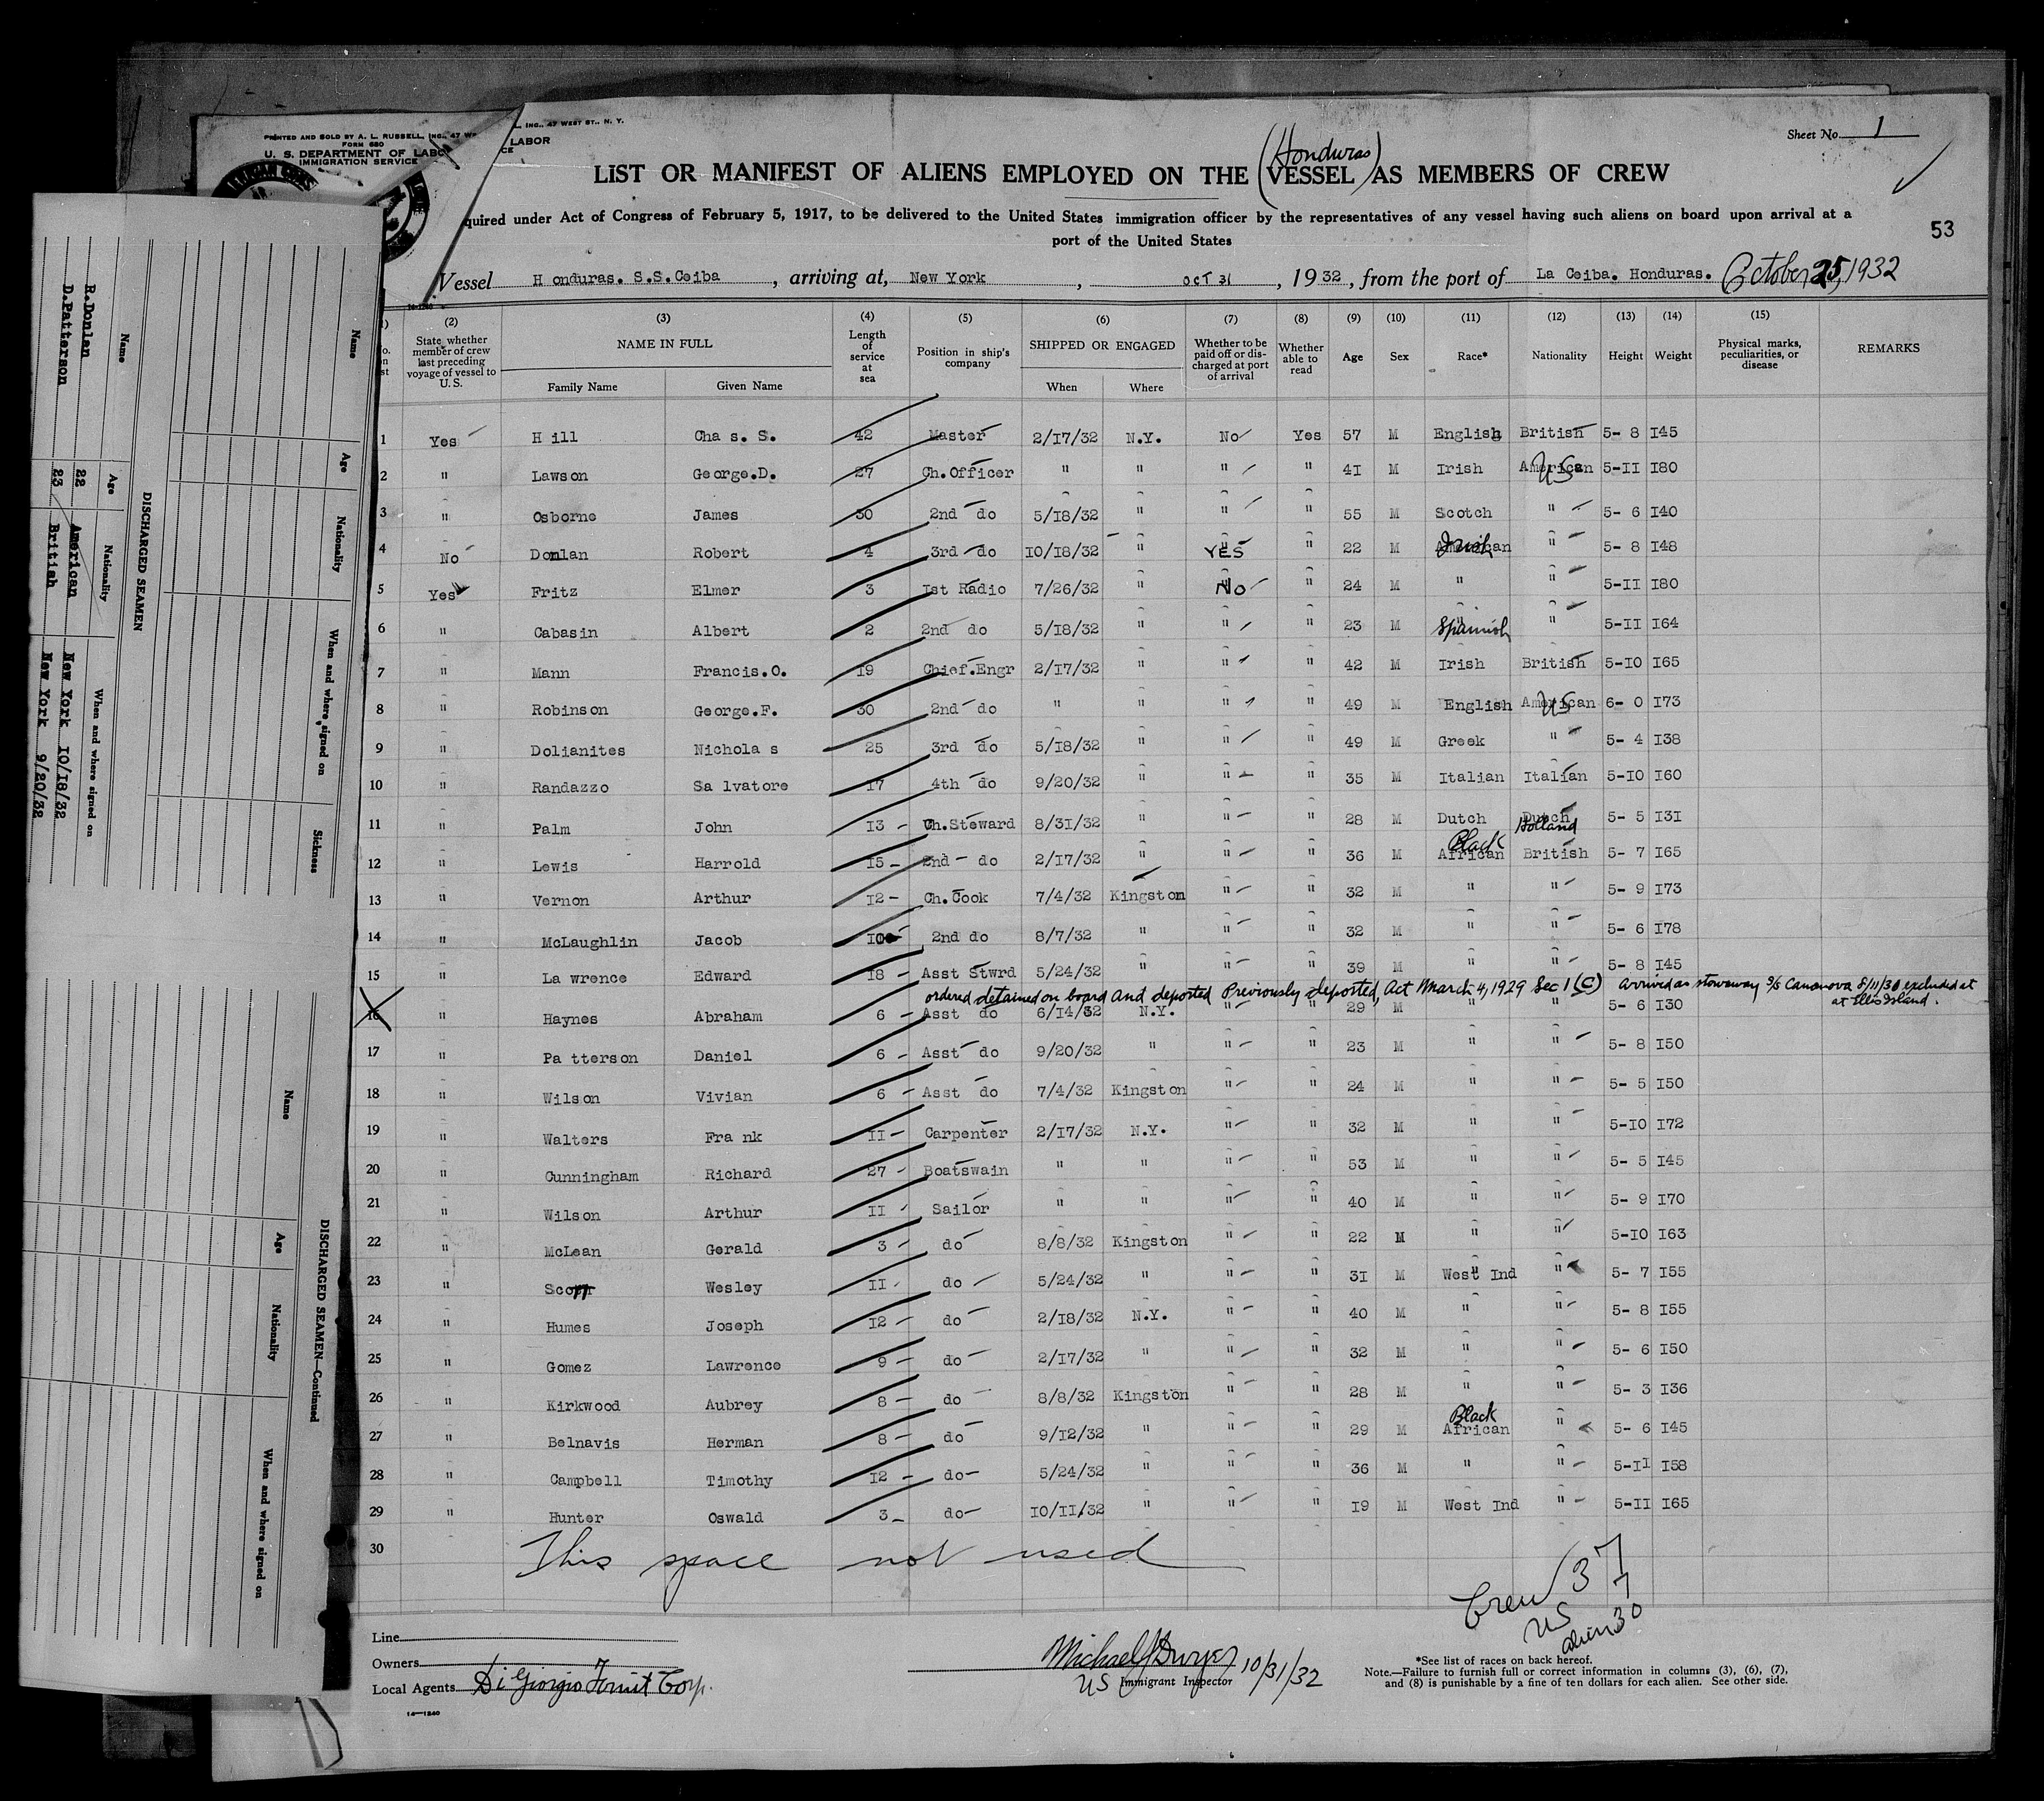 PRINTED AND SOLD BY A. L. RUSSELL, INC., 47 WE
FORM 680
U. S. DEPARTMENT OF LABO
IMMIGRATION SERVICE
L, INC., 47 WEST ST., N. Y.
LABOR
CE
Sheet No. 1
(Honduras)
LIST OR MANIFEST OF ALIENS EMPLOYED ON THE VESSEL AS MEMBERS OF CREW
quired under Act of Congress of February 5, 1917, to be delivered to the United States immigration officer by the representatives of any vessel having such aliens on board upon arrival at a
port of the United States
53
Vessel Honduras. S.S.Ceiba, arriving at, New York, OCT 31, 1932, from the port of La Ceiba. Honduras. October 25, 1932
(2) (3) (4) (5) (6) (7) (8) (9) (10) (11) (12) (13) (14) (15)
State whether member of crew last preceding voyage of vessel to U. S.
NAME IN FULL
Family Name Given Name
Length of service at sea
Position in ship's company
SHIPPED OR ENGAGED
When Where
Whether to be paid off or discharged at port of arrival
Whether able to read
Age Sex Race* Nationality Height Weight
Physical marks, peculiarities, or disease
REMARKS
1 Yes Hill Chas. S. 42 Master 2/17/32 N.Y. No Yes 57 M English British 5- 8 145
2 " Lawson George.D. 27 Ch.Officer " " " " 41 M Irish American US 5-11 180
3 " Osborne James 30 2nd do 5/18/32 " " " 55 M Scotch " 5- 6 140
4 No Donlan Robert 4 3rd do 10/18/32 " YES " 22 M American Irish " 5- 8 148
5 Yes Fritz Elmer 3 1st Radio 7/26/32 " No " 24 M " " 5-11 180
6 " Cabasin Albert 2 2nd do 5/18/32 " " " 23 M Spanish " 5-11 164
7 " Mann Francis.O. 19 Chief.Engr 2/17/32 " " " 42 M Irish British 5-10 165
8 " Robinson George.F. 30 2nd do " " " " 49 M English American US 6- 0 173
9 " Dolianites Nicholas 25 3rd do 5/18/32 " " " 49 M Greek " 5- 4 138
10 " Randazzo Salvatore 17 4th do 9/20/32 " " " 35 M Italian Italian 5-10 160
11 " Palm John 13 - Ch.Steward 8/31/32 " " " 28 M Dutch Dutch Holland 5- 5 131
12 " Lewis Harrold 15 - 2nd do 2/17/32 " " " 36 M Black African British 5- 7 165
13 " Vernon Arthur 12 - Ch.Cook 7/4/32 Kingston " " 32 M " " 5- 9 173
14 " McLaughlin Jacob 10 2nd do 8/7/32 " " " 32 M " " 5- 6 178
15 " Lawrence Edward 18 - Asst Stwrd 5/24/32 " " " 39 M " " 5- 8 145
ordered detained on board and deported Previously deported, Act March 4, 1929 Sec 1 (C) Arrived as stowaway S/S Casanova 8/11/30 excluded at
at Ellis Island.
16 " Haynes Abraham 6 - Asst do 6/14/32 N.Y. " " 29 M " " 5- 6 130
17 " Patterson Daniel 6 - Asst do 9/20/32 " " " 23 M " " 5- 8 150
18 " Wilson Vivian 6 - Asst do 7/4/32 Kingston " " 24 M " " 5- 5 150
19 " Walters Frank 11 - Carpenter 2/17/32 N.Y. " " 32 M " " 5-10 172
20 " Cunningham Richard 27 - Boatswain " " " " 53 M " " 5- 5 145
21 " Wilson Arthur 11 - Sailor " " " " 40 M " " 5- 9 170
22 " McLean Gerald 3 - do 8/8/32 Kingston " " 22 M " " 5-10 163
23 " Scott Wesley 11 - do 5/24/32 " " " 31 M West Ind " 5- 7 155
24 " Humes Joseph 12 - do 2/18/32 N.Y. " " 40 M " " 5- 8 155
25 " Gomez Lawrence 9 - do 2/17/32 " " " 32 M " " 5- 6 150
26 " Kirkwood Aubrey 8 - do 8/8/32 Kingston " " 28 M " " 5- 3 136
27 " Belnavis Herman 8 - do 9/12/32 " " " 29 M Black African " 5- 6 145
28 " Campbell Timothy 12 - do 5/24/32 " " " 36 M " " 5-11 158
29 " Hunter Oswald 3 - do 10/11/32 " " " 19 M West Ind " 5-11 165
30 This space not used
Crew 37
US 7
alien 30
Line
Owners
Local Agents Di Giorgio Fruit Corp.
14-1240
Michael J Dwyer 10/31/32
US Immigrant Inspector
*See list of races on back hereof.
Note.—Failure to furnish full or correct information in columns (3), (6), (7),
and (8) is punishable by a fine of ten dollars for each alien. See other side.
DISCHARGED SEAMEN
Name Age Nationality When and where signed on
R.Donlan 22 American New York 10/18/32
D.Patterson 23 British New York 9/20/32
Name Age Nationality When and where signed on Sickness
DISCHARGED SEAMEN—Continued
Name Age Nationality When and where signed on